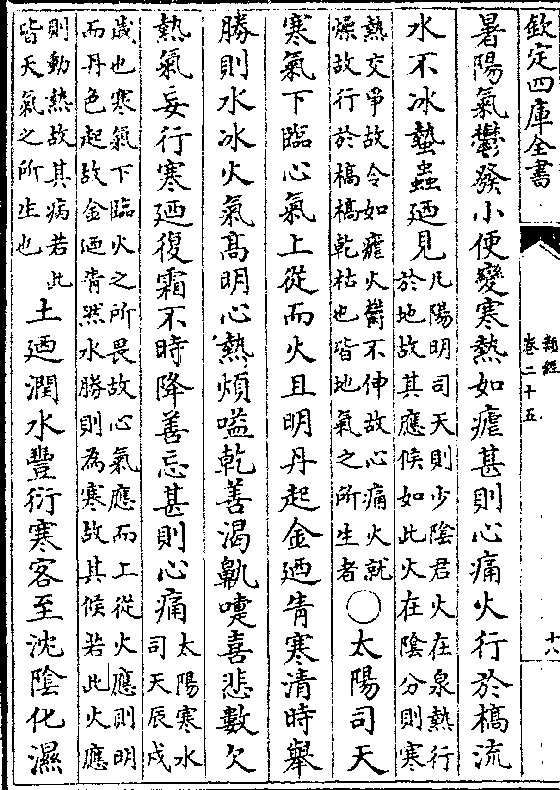 欽定四庫全書
類經
卷二十五
十八
暑陽氣鬱發小便變寒熱如瘧甚則心痛火行於槁流
水不冰蟄蟲廼見
凡陽明司天則少陰君火在泉熱行
於地故其應候如此火在陰分則寒
熱交爭故令如瘧火鬱不伸故心痛火就
燥故行於槁槁乾枯也皆地氣之所生者
○太陽司天
寒氣下臨心氣上從而火且明丹起金廼眚寒清時舉
勝則水冰火氣高明心熱煩嗌乾善渴鼽嚏喜悲數欠
熱氣妄行寒廼復霜不時降善忘甚則心痛
太陽寒水
司天辰戌
歲也寒氣下臨火之所畏故心氣應而上從火應則明
而丹色起故金廼眚然水勝則為寒故其候若此火應
則動熱故其病若此
皆天氣之所生也
土廼潤水豐衍寒客至沈陰化濕